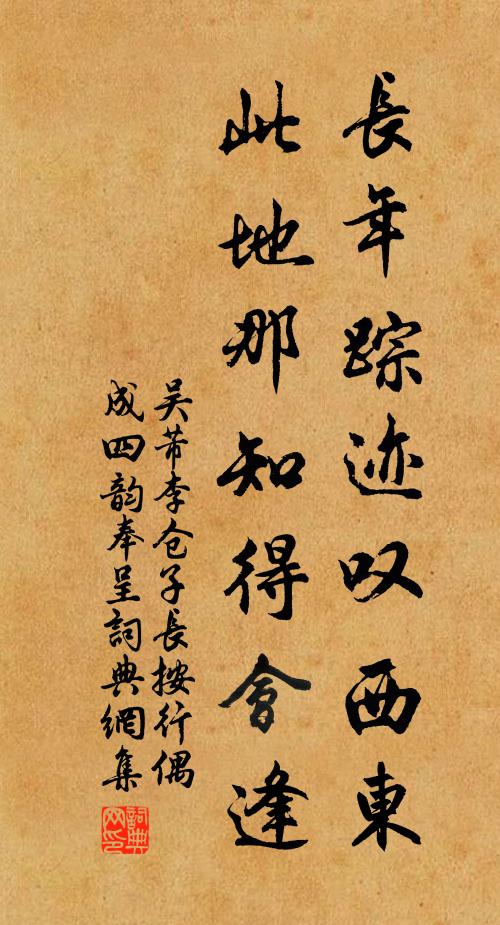 長年踪迹叹西東
此地那知得會逢
吴芾李仓子長按行偶
成四韵奉呈詞典網集
詞典
网印